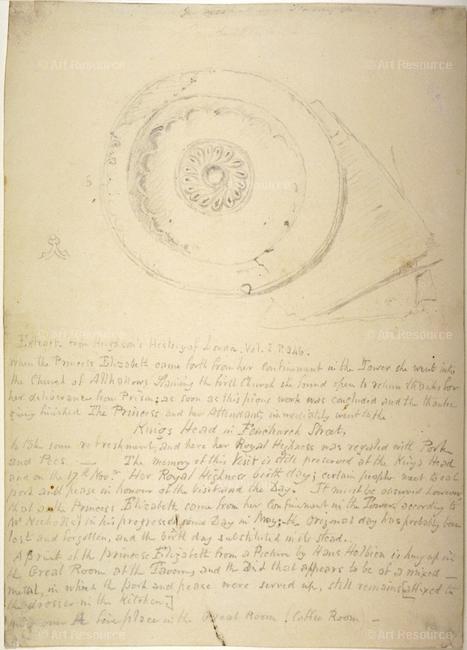 © Art Resource © Art Resource
© Art Resource © Art Resource
© Art Resource © Art Resource
Extract from Hughson's History of London, Vol. 2. P. 246.
when the Princess Elizabeth came forth from her Confinement in the Tower she went into
the Church of Allhallows Staining the first Church she found open to return thanks for
her deliverance from Prison; as soon as this pious work was concluded and the thanks
giving finished The Princess and her Attendants immediately went to the
Kings Head in Fenchurch Street,
to take some refreshment, and here her Royal Highness was regaled with Pork
and Pees — The memory of this Visit is still preserved at the Kings Head
and on the 17th Novr Her Royal Highness birth day; certain people meet to eat
pork and pease in honour of the Visit and the Day. It must be observed however
that as the Princess Elizabeth came from her Confinement in the Tower, according to
Mr Nichols in his progresses some Day in May; the original day has probably been
lost and forgotten, and the birth day substituted in its stead.
A print of the princess Elizabeth from a Picture by Hans Holbien is hung up in
the Great Room at the Tavern, and the Dish that appears to be of a mixed
metal, in which the pork and pease were served up, still remains affixed in
the dresser in the Kitchen]
over A fire place in the Great Room (Coffee Room —